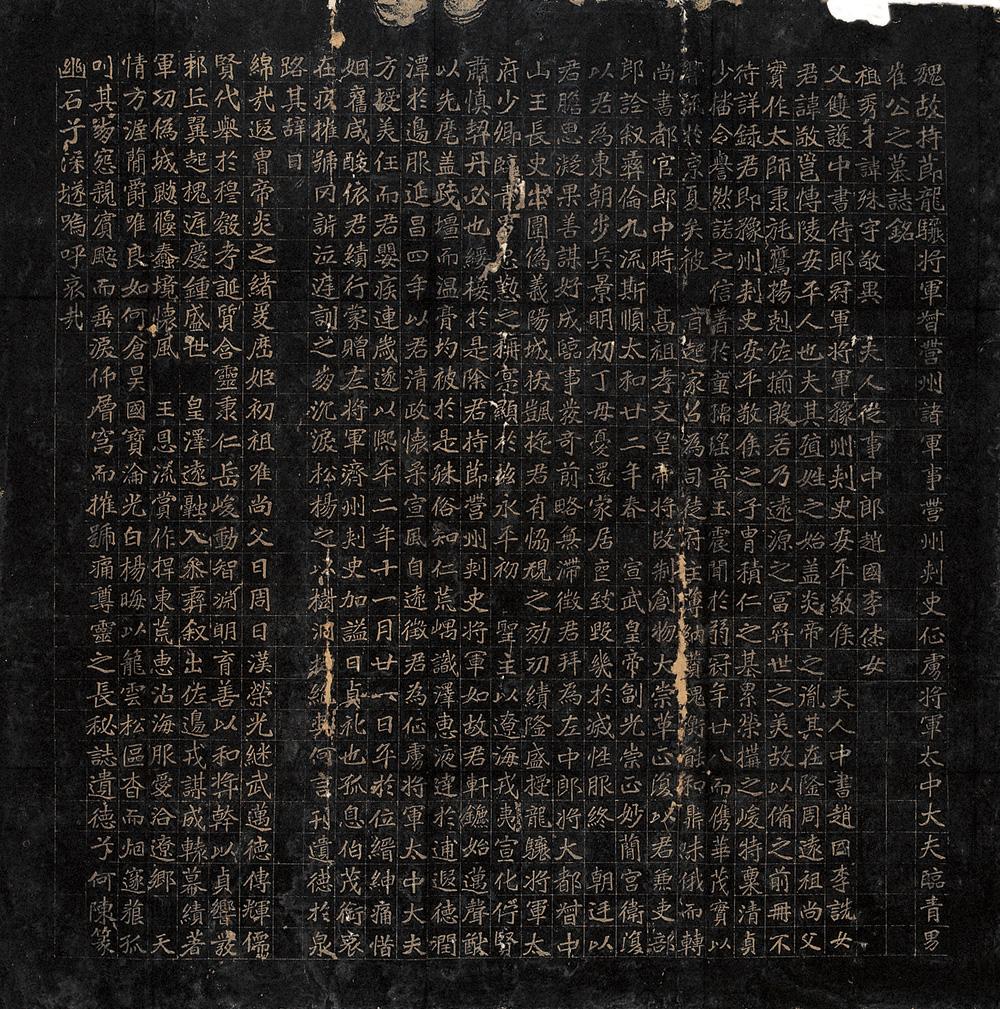 魏故持莭龍驤将軍督營州諸軍事營州刾史征虜将軍太中大夫臨青男
崔公之墓誌銘
祖秀才諱殊字敬異 夫人從事中郎趙國李休女
父雙護中書侍郎冠軍将軍豫州刾史安平敬侯 夫人中書趙國李詵女
君諱敬邕愽陵安平人也夫其殖姓之始盖炎帝之胤其在隆周遠祖尚父
實作太師秉旄鷹揚剋佐揃殷若乃遠源之富弈世之美故以備之前冊不
待詳錄君即豫州刾史安平敬侯之子胄積仁之基累榮搆之峻特稟清貞
少播令譽然諾之信著於童孺瑶音玉震聞於弱冠年廿八而儁華茂實以
於京夏矣被 旨起家召為司徒府主簿納贊槐衡能和鼎味俄而轉
尚書都官郎中時 高祖孝文皇帝将改制創物大崇革正復以君兼吏部
郎詮叙彝倫九流斯順太和廿二年春 宣武皇帝創光崇正妙簡宮衛復
以君為東朝步兵景明初丁母憂還家居喪致毀幾於滅性服終 朝廷以
君膽思凝果善謀好成臨事發奇前略無滯徵君拜為左中郎将大都督中
山王長史出圍偽義陽城拔凱旋君有協規之効功績隆盛授龍驤将軍太
府少卿臨青男忠懃之稱稾顯於茲永平初 聖主以遼海戎夷宣化佇賢
肅慎契丹必也綏接於是除君持莭營州刾史将軍如故君軒鑣始邁聲猷
以先麾盖踐壇而温膏均被於是殊俗知仁荒嵎識澤惠液達於逋遐德潤
潭於邊服延昌四年以君清政懷柔宣風自遠徵君為征虜将軍太中大夫
方授美任而君嬰疾連歳遂以熙平二年十一月廿一日卒於位縉紳痛惜
姻舊咸酸依君績行蒙贈左将軍濟州刾史加謚曰貞礼也孤息伯茂銜哀
在疚摧號罔訴泣庭訓之崩沉淚松楊之以樹洞抽絕其何言刊遺德於泉
路其辞曰
綿㢤遐胄帝炎之緒爰歷姬初祖唯尚父曰周曰漢榮光継武邁德傳輝儒
賢代舉於穆叡考誕質含靈秉仁岳峻動智淵明育善以和将幹以貞響發
邦丘翼起槐庭慶鍾盛世 皇澤遠融入叅彝叙出佐邊戎謀成轅幕績著
軍功偽城飈偃蠢境懷風 王恩流賞作捍東荒惠沾海服愛洽遼鄉 天
情方渥簡爵唯良如何倉昊國寶淪光白楊晦以籠雲松區杳而烟邃藐孤
叫其崩怨親賓颷而垂淚仰層穹而摧號痛尊靈之長秘誌遺德子何陳篆
幽石于深㙩嗚呼哀㢤